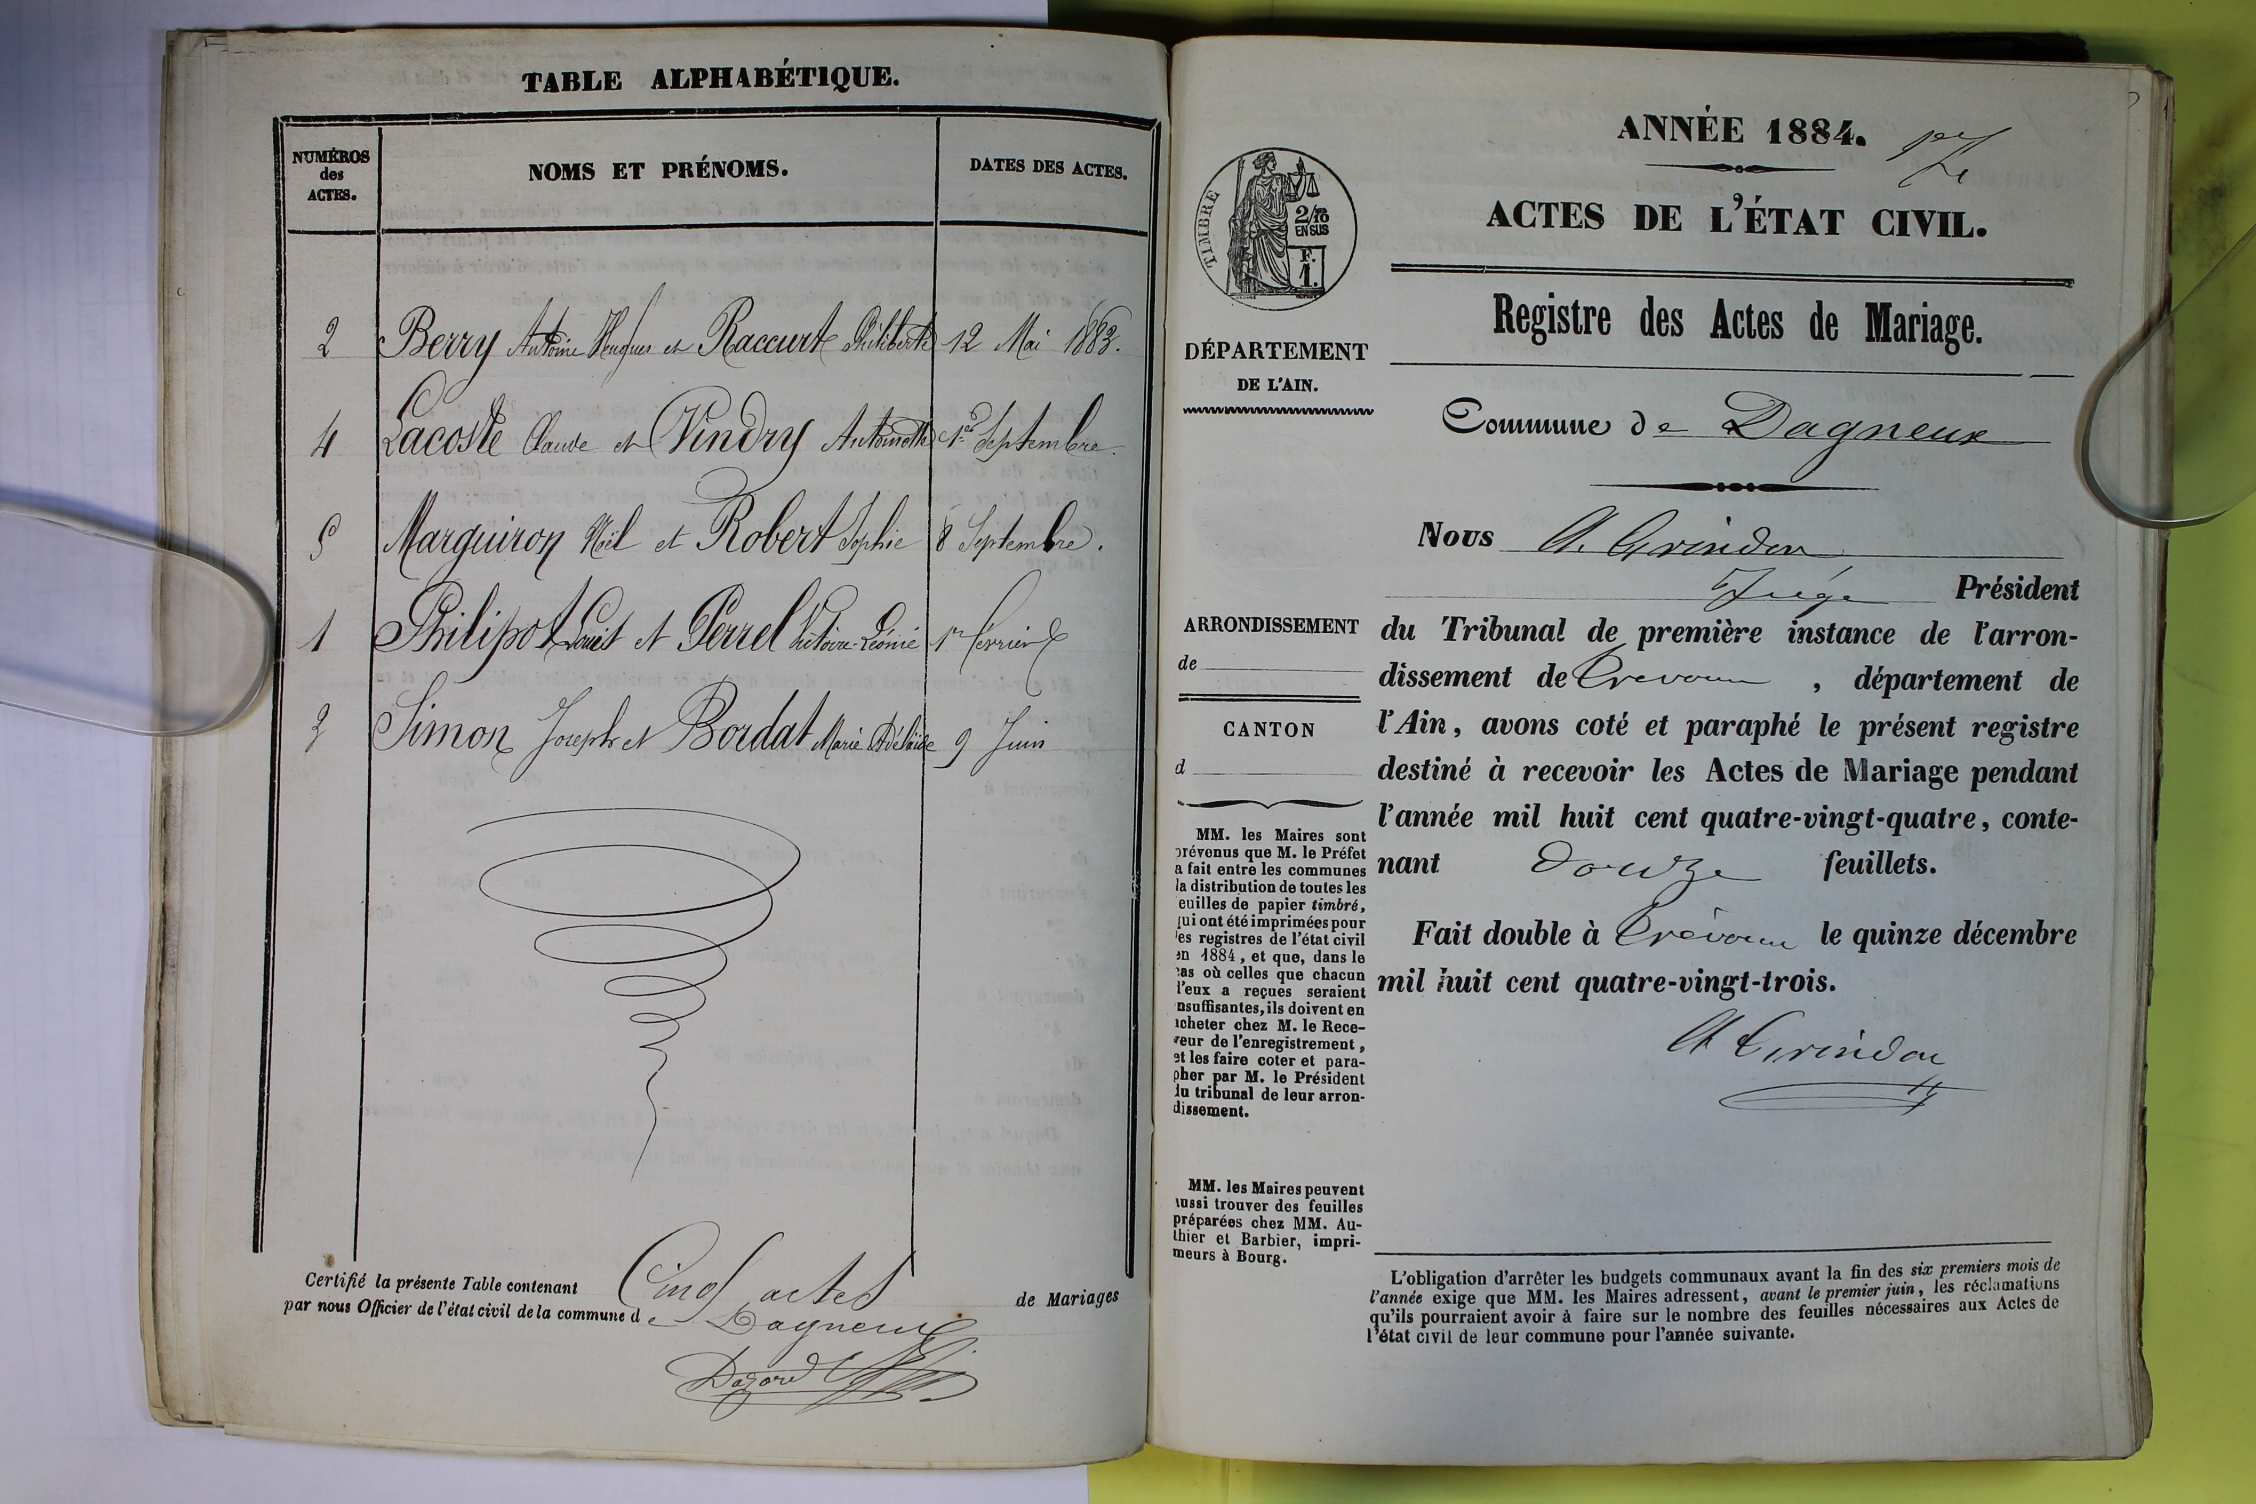 TABLE ALPHABÉTIQUE.
NUMÉROS des ACTES.
NOMS ET PRÉNOMS.
DATES DES ACTES.
2 Berry Antoine Hugues et Raccurt Philiberte 12 Mai 1883.
4 Lacoste Claude et Vindry Antoinette 1er Septembre.
5 Marguiron Noël et Robert Sophie 8 Septembre.
1 Philipot Louis et Perrel Victoire-Léonie 1er février
3 Simon Joseph et Bordat Marie Adélaïde 9 Juin
Certifié la présente Table contenant Cinq actes de Mariages
par nous Officier de l'état civil de la commune de Dagneux
Dazord
ANNÉE 1884.
ACTES DE L'ÉTAT CIVIL.
TIMBRE
2/10
EN SUS
F.
1.
Registre des Actes de Mariage.
DÉPARTEMENT
DE L'AIN.
Commune de Dagneux
Nous A. Grindon
Juge Président
du Tribunal de première instance de l'arron-
dissement de Trevoux, département de
l'Ain, avons coté et paraphé le présent registre
destiné à recevoir les Actes de Mariage pendant
l'année mil huit cent quatre-vingt-quatre, conte-
nant douze feuillets.
Fait double à Trévoux le quinze décembre
mil huit cent quatre-vingt-trois.
A Grindon
ARRONDISSEMENT
de
CANTON
d
MM. les Maires sont
prévenus que M. le Préfet
a fait entre les communes
la distribution de toutes les
feuilles de papier timbré,
qui ont été imprimées pour
les registres de l'état civil
en 1884, et que, dans le
cas où celles que chacun
d'eux a reçues seraient
insuffisantes, ils doivent en
acheter chez M. le Rece-
veur de l'enregistrement,
et les faire coter et para-
pher par M. le Président
du tribunal de leur arron-
dissement.
MM. les Maires peuvent
aussi trouver des feuilles
préparées chez MM. Au-
thier et Barbier, impri-
meurs à Bourg.
L'obligation d'arrêter les budgets communaux avant la fin des six premiers mois de
l'année exige que MM. les Maires adressent, avant le premier juin, les réclamations
qu'ils pourraient avoir à faire sur le nombre des feuilles nécessaires aux Actes de
l'état civil de leur commune pour l'année suivante.